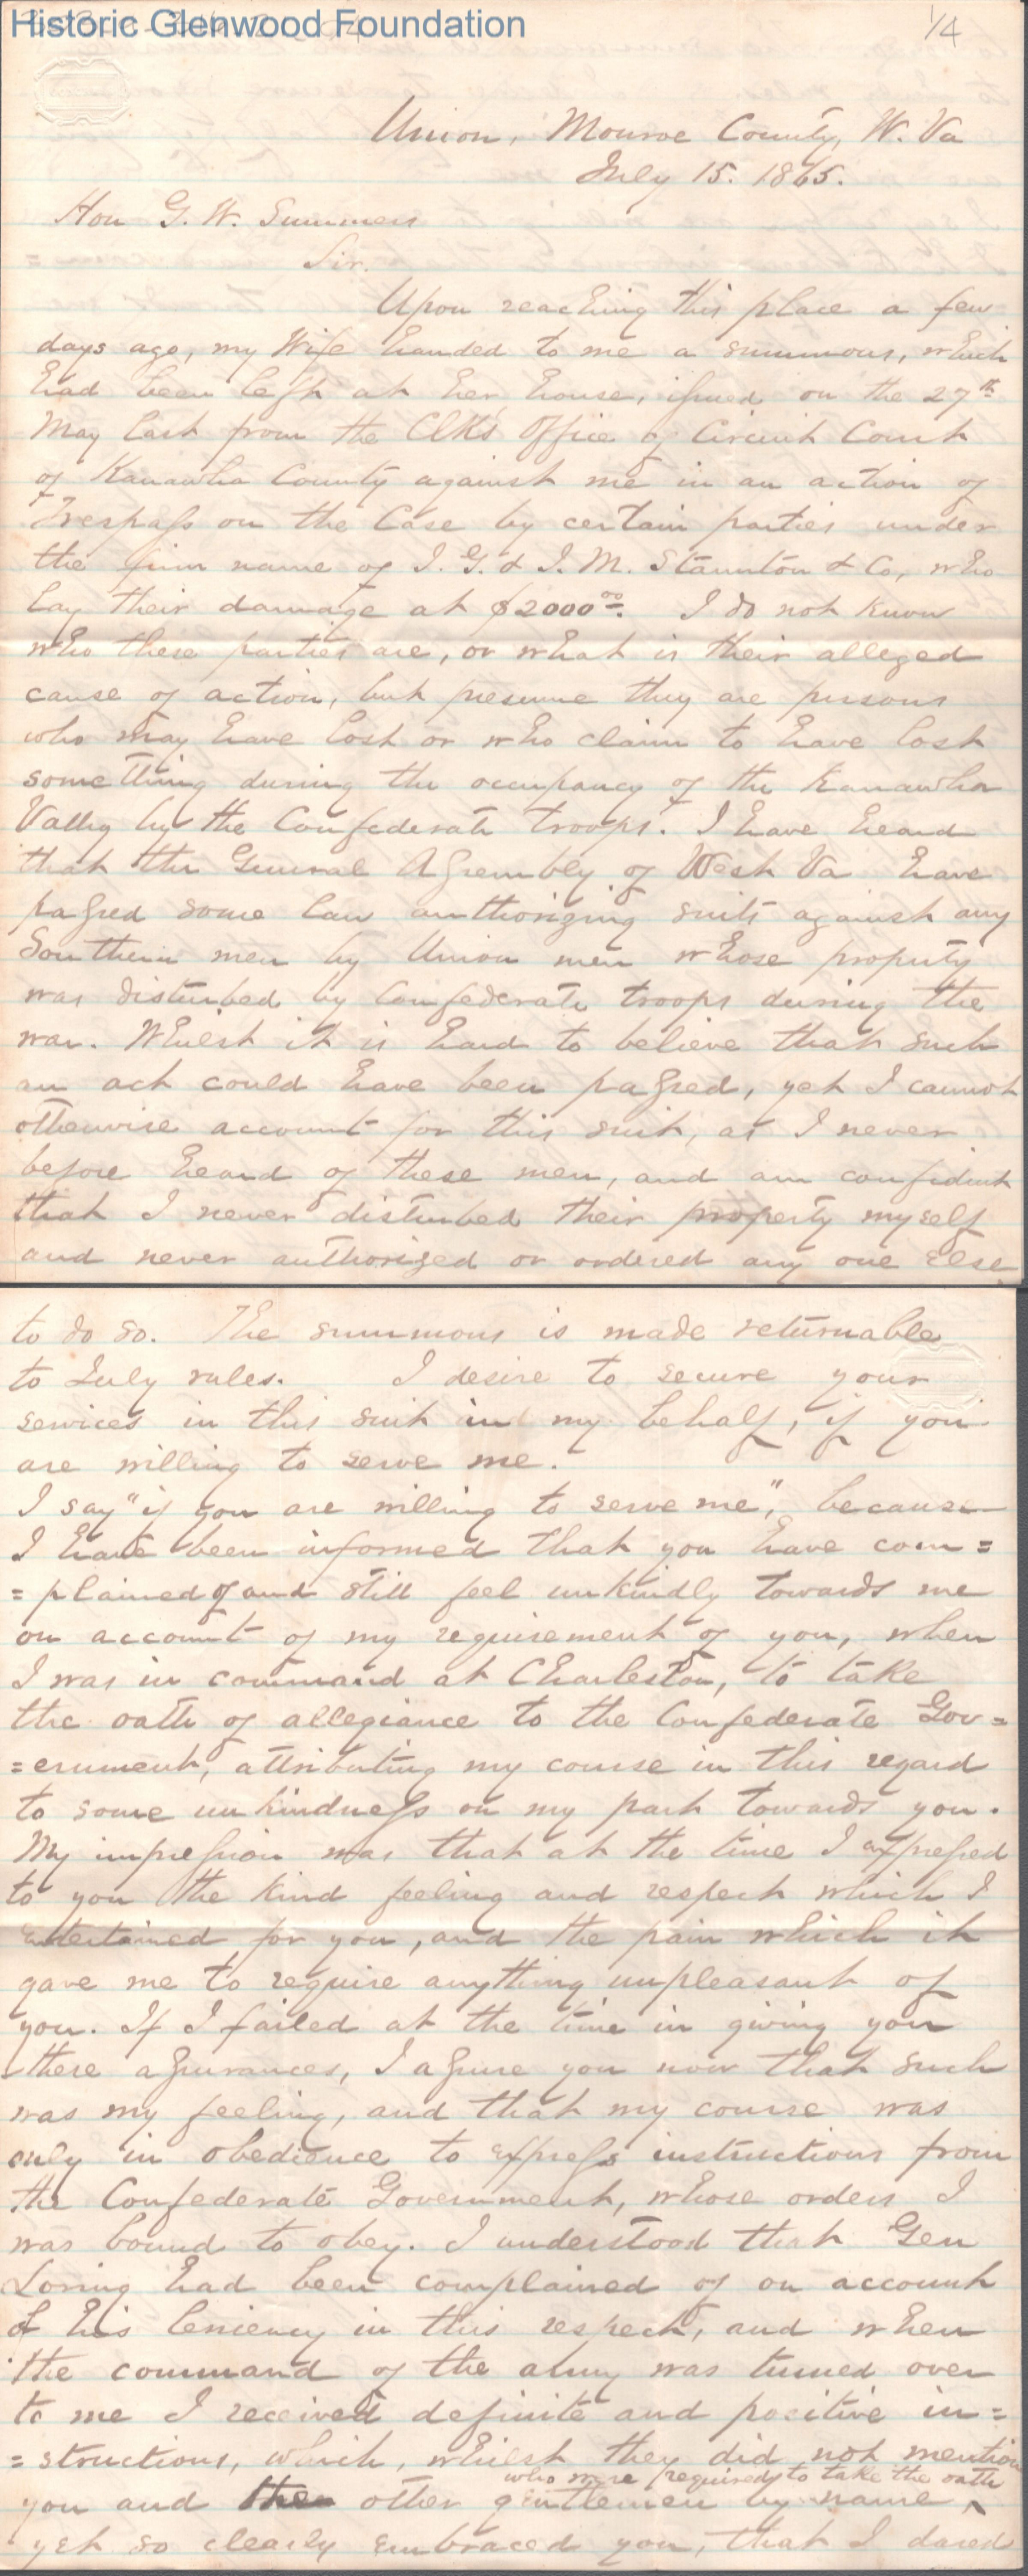 Historic Glenwood Foundation
1/4
Union, Monroe County, W. Va
July 15. 1865.
Hon G. W. Summers
Sir.
Upon reaching this place a few
days ago, my Wife handed to me a summons, which
had been left at her house, issued on the 27th
May last from the Clks Office of Circuit Court
of Kanawha County against me in an action of
Trespass on the Case by certain parties under
the firm name of J. G. & J. M. Staunton & Co, who
lay their damage at $2000.00. I do not know
who these parties are, or what is their alleged
cause of action, but presume they are persons
who may have lost or who claim to have lost
something during the occupancy of the Kanawha
Valley by the Confederate troops. I have heard
that the General Assembly of West Va have
passed some law authorizing suits against any
Southern men by Union men whose property
was disturbed by Confederate troops during the
war. Whilst it is hard to believe that such
an act could have been passed, yet I cannot
otherwise account for this suit, as I never
before heard of these men, and am confident
that I never disturbed their property myself
and never authorized or ordered any one else
to do so. The summons is made returnable
to July rules. I desire to secure your
services in this suit in my behalf, if you
are willing to serve me.
I say "if you are willing to serve me", because
I have been informed that you have com=
=plained of and still feel unkindly towards me
on account of my requirement of you, when
I was in command at Charleston, to take
the oath of allegiance to the Confederate Gov=
=ernment, attributing my course in this regard
to some unkindness on my part towards you.
My impression was that at the time I expressed
to you the kind feeling and respect which I
entertained for you, and the pain which it
gave me to require anything unpleasant of
you. If I failed at the time in giving you
these assurances, I assure you now that such
was my feeling, and that my course was
only in obedience to express instructions from
the Confederate Government, whose orders I
was bound to obey. I understood that Gen
Loring had been complained of on account
of his leniency in this respect, and when
the command of the army was turned over
to me I received definite and positive in=
=structions, which, whilst they did not mention
who were required to take the oath
you and the other gentlemen by name ^
yet so clearly embraced you, that I dared